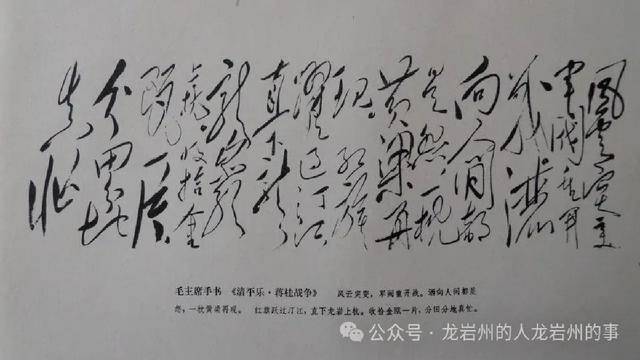 風雲突变
軍閥重开
战洒
向人间都
是怨一枕
黄粱再
现 红旗
躍过汀江
直下
龍巖
上杭收拾金
瓯一片
分田分地
真忙
毛主席手书 《清平乐·蒋桂战争》 风云突变，军阀重开战。洒向人间都是
怨，一枕黄粱再现。 红旗跃过汀江，直下龙岩上杭。收拾金瓯一片，分田分地真忙。
公众号·龙岩州的人龙岩州的事